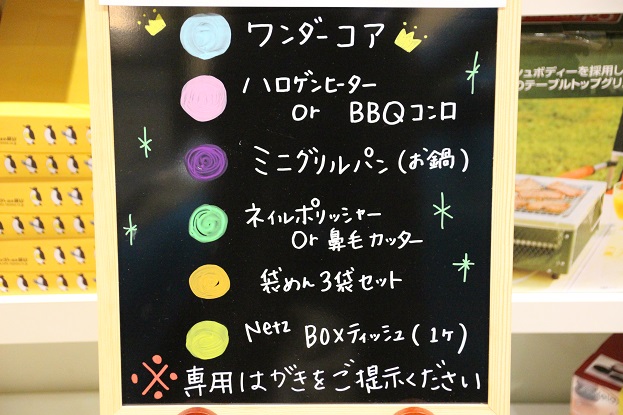 ワンダーコア
ハロゲンヒーター
or BBQコンロ
ミニグリルパン(お鍋)
ネイルポリッシャー
or 鼻毛カッター
袋めん3袋セット
Netz BOXティッシュ(1ケ)
※専用はがきをご提示ください
シュボディーを採用し
のテーブルトップグリ